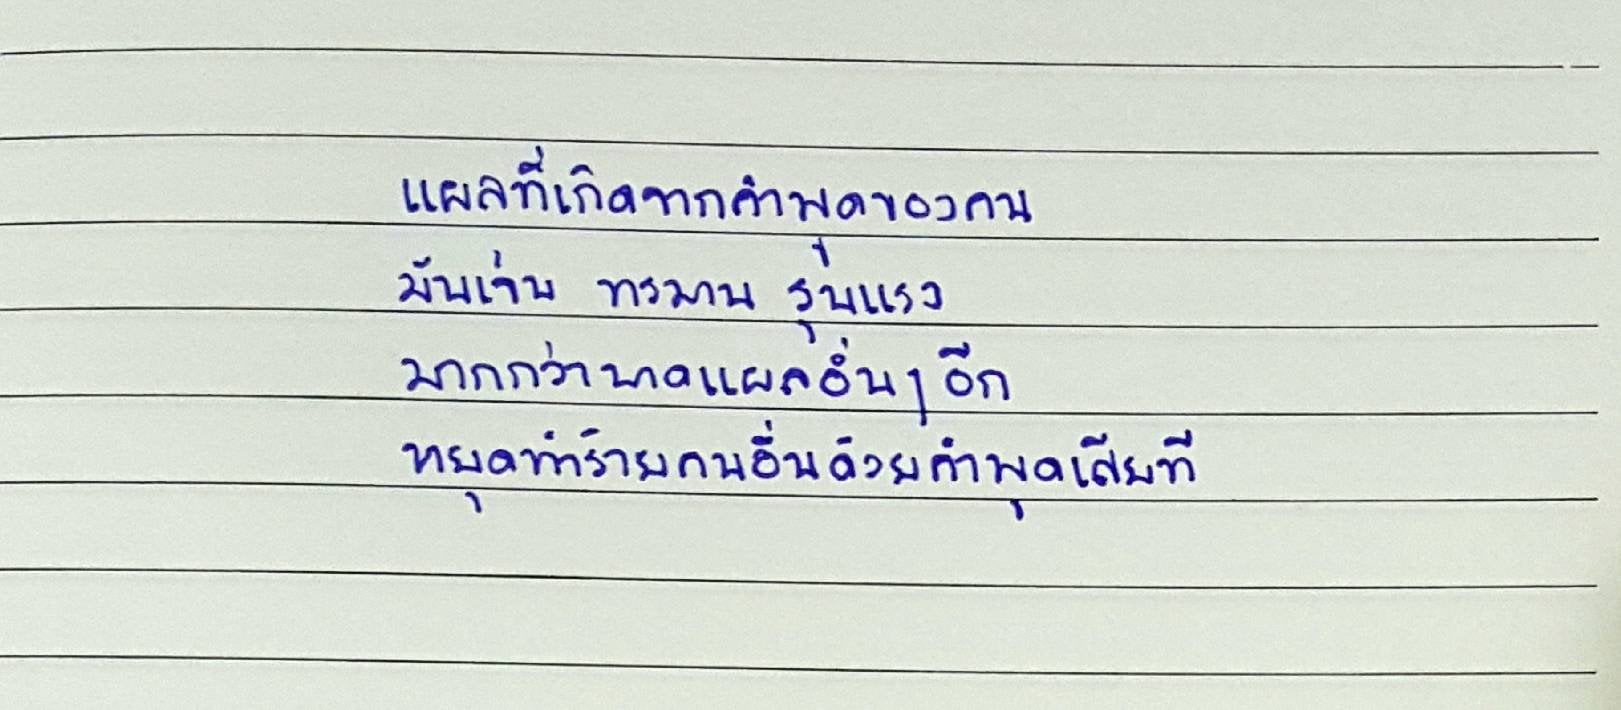 แผลที่เกิดจากคำพูดของคน
มันเจ็บ ทรมาน รุนแรง
มากกว่าบาดแผลอื่นๆ อีก
หยุดทำร้ายคนอื่นด้วยคำพูดเสียที